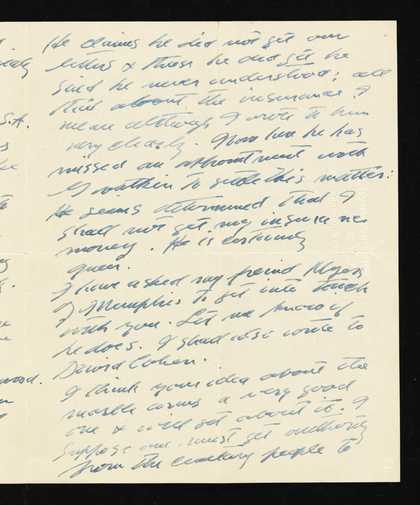 He claims he did not get our
letters & those he did get he
said he never understood; all
that about the insurance I
mean although I wrote to him
very clearly. Now he has
missed an appointment with
to settle this matter.
He seems determined that I
shall not get my insurance
money. He is certainly
queer.
I have asked my friend
of Memphis to get into touch
with you. Let me know if
he does. I shall also write to
David Cohen.
I think your idea about the
marble a very good
one & will set about it. I
suppose one must get authority
from the cemetery people to
S.A.